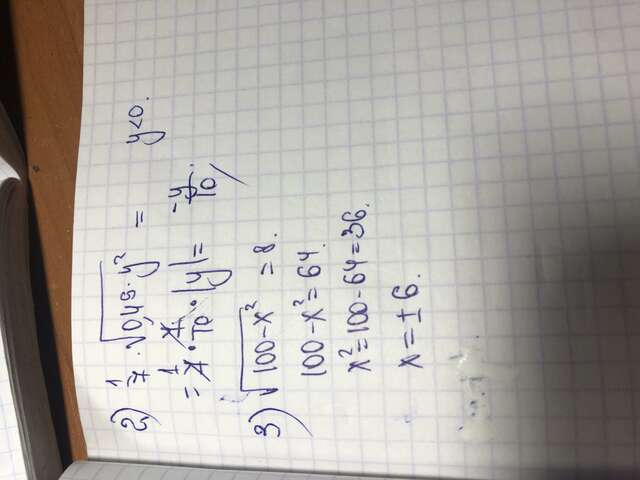 2) 1/7 · √0,49 · y² = y<0.
= 1/7 · 7/10 · |y| = -y/10.
3) √100-x² = 8.
100-x² = 64.
x² = 100-64 = 36.
x = ±6.